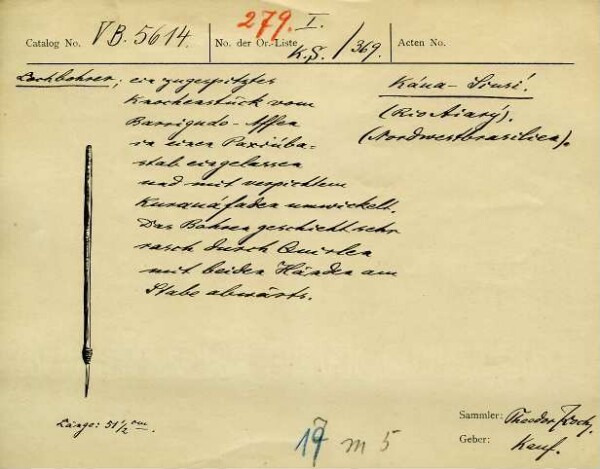 279. I.
Catalog No. VB. 5614. No. der Or.-Liste K.G./369. Acten No.
Lochbohrer; ein zugespitztes
Knochenstück vom
Barrigudo-Affen
in einen Paxiúba-
stab eingelassen
und mit verpichtem
Kurauáfaden umwickelt.
Das Bohren geschieht sehr
rasch durch Quirlen
mit beiden Händen am
Stabe abwärts.
Káua-Siusí.
(Rio Aiarý).
(Nordwestbrasilien).
Länge: 51 1/2 cm.
Sammler: Theodor Koch.
Geber: Kauf.
19 m 5